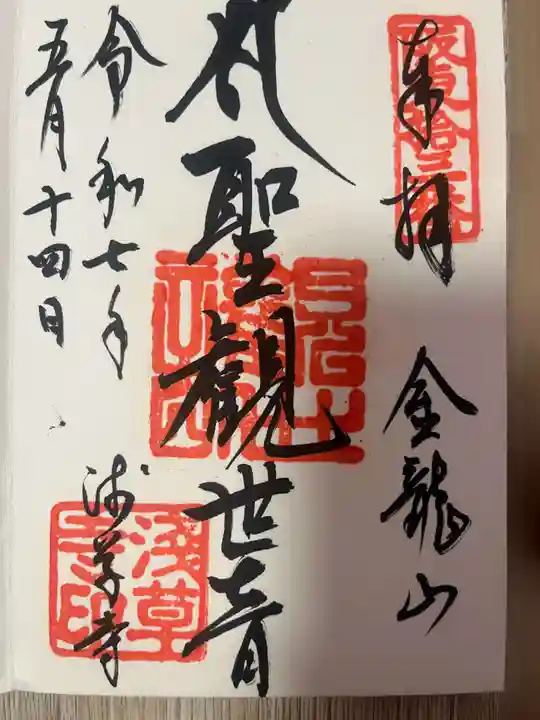 奉拝
金龍山
聖観世音
令和七年
五月十四日
浅草寺
坂東拾三番
浅草寺印